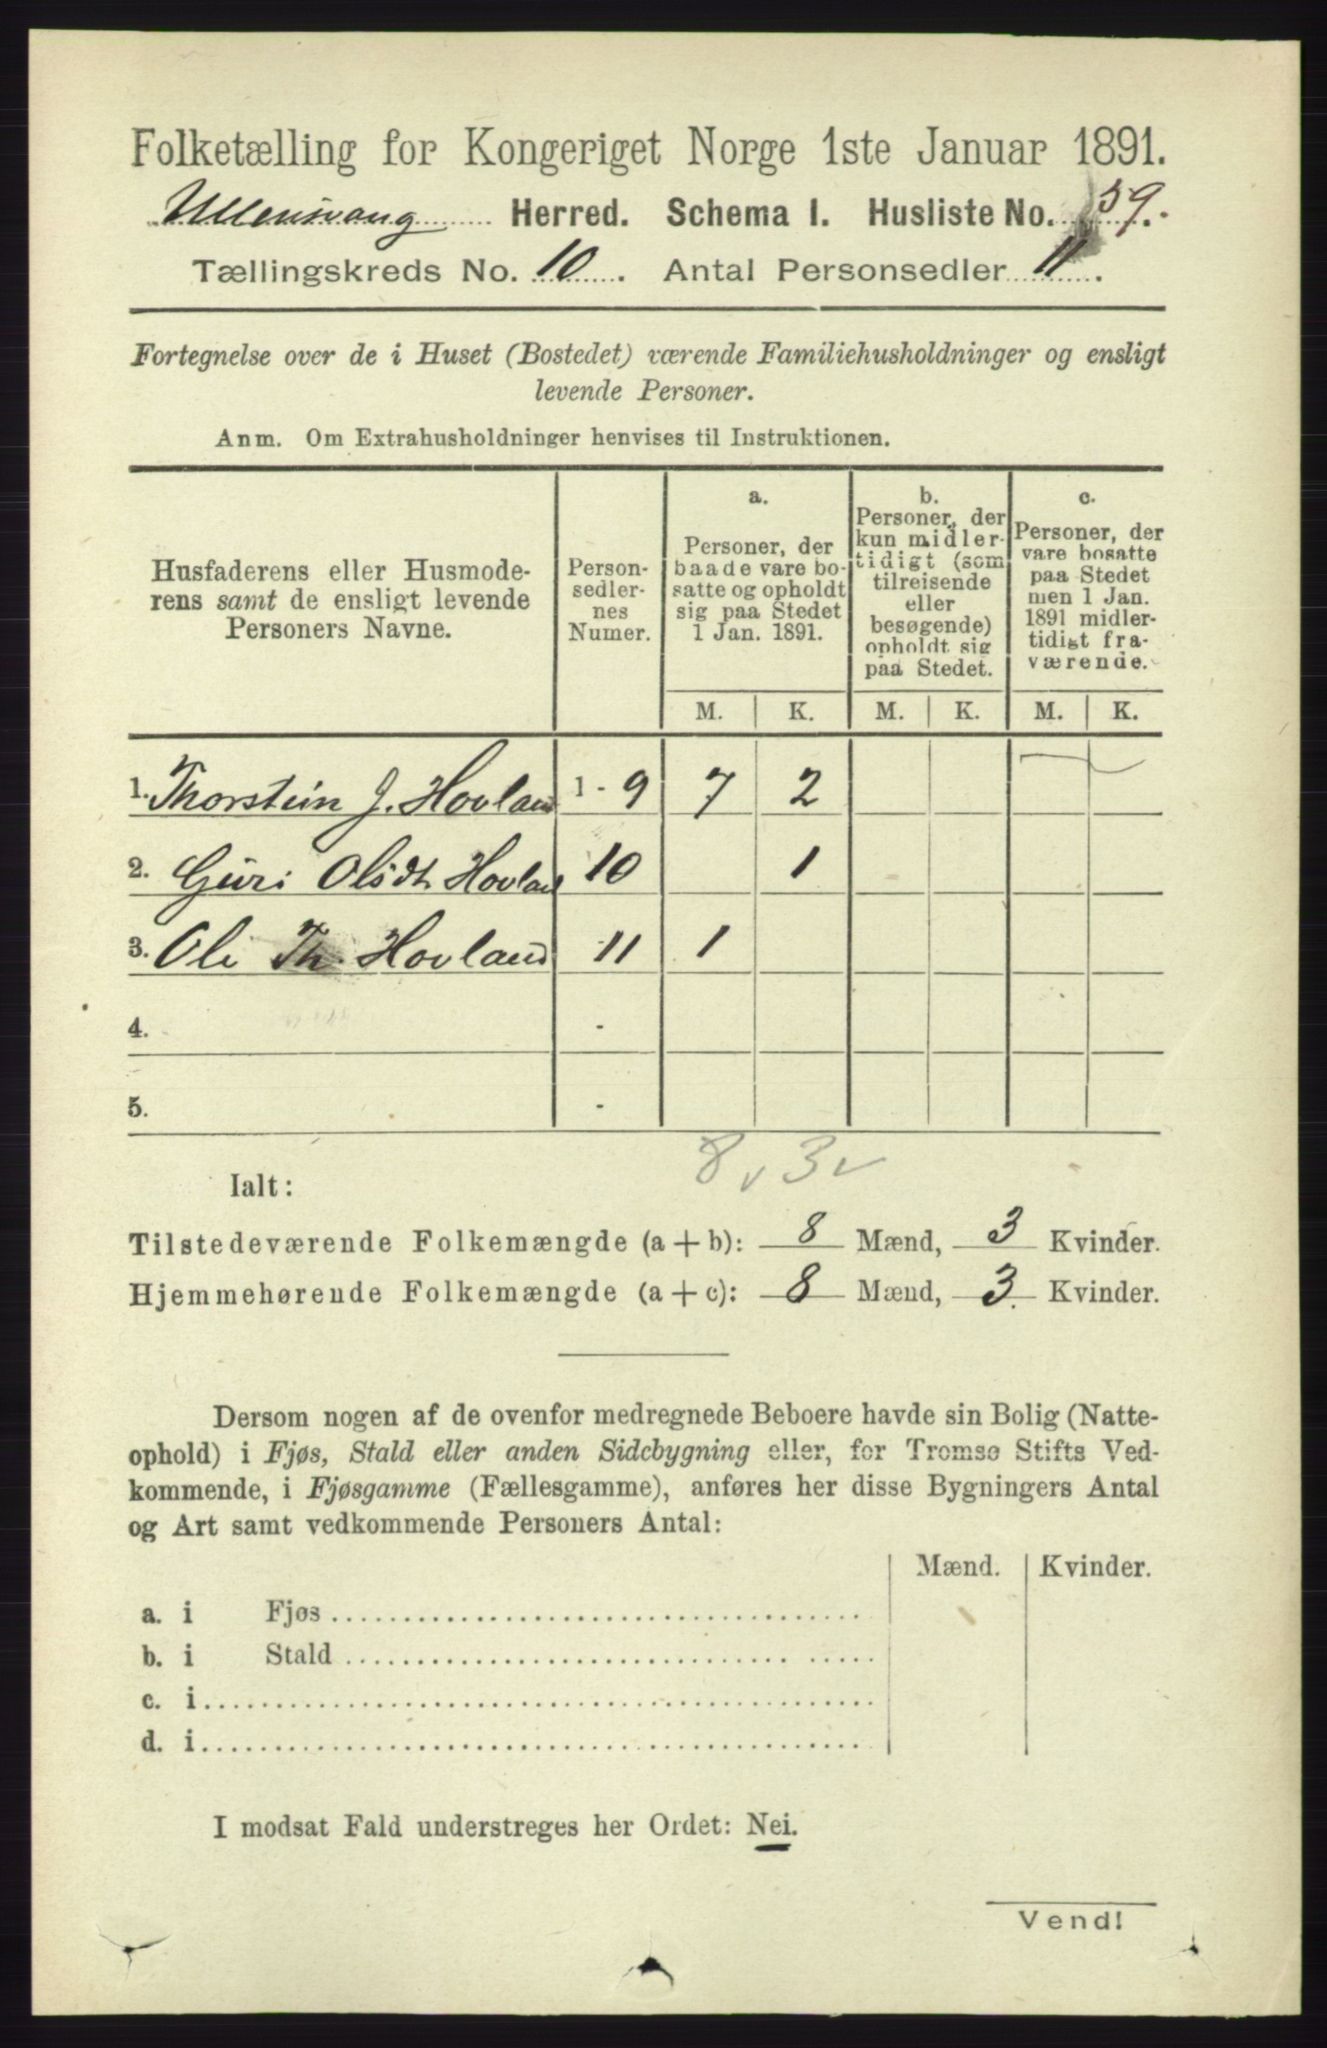 Folketælling for Kongeriget Norge 1ste Januar 1891.
Ullensvang Herred. Schema I. Husliste No. 39.
Tællingskreds No. 10. Antal Personsedler 11.
Fortegnelse over de i Huset (Bostedet) værende Familiehusholdninger og ensligt
levende Personer.
Anm. Om Extrahusholdninger henvises til Instruktionen.
Husfaderens eller Husmode-
rens samt de ensligt levende
Personers Navne.
Person-
sedler-
nes
Numer.
a.
Personer, der
baade vare bo-
satte og opholdt
sig paa Stedet
1 Jan. 1891.
b.
Personer, der
kun midler-
tidigt (som
tilreisende
eller
besøgende)
opholdt sig
paa Stedet.
c.
Personer, der
vare bosatte
paa Stedet
men 1 Jan.
1891 midler-
tidigt fra-
værende.
M. K. M. K. M. K.
1. Thorstein J. Hovland 1 - 9 7 2
2. Guri Olsdt. Hovland 10 1
3. Ole Th. Hovland 11 1
4. -
5. -
8 v 3 v
Ialt:
Tilstedeværende Folkemængde (a + b): 8 Mænd, 3 Kvinder.
Hjemmehørende Folkemængde (a + c): 8 Mænd, 3. Kvinder.
Dersom nogen af de ovenfor medregnede Beboere havde sin Bolig (Natte-
ophold) i Fjøs, Stald eller anden Sidebygning eller, for Tromsø Stifts Ved-
kommende, i Fjøsgamme (Fællesgamme), anføres her disse Bygningers Antal
og Art samt vedkommende Personers Antal:
Mænd. Kvinder.
a. i Fjøs
b. i Stald
c. i
d. i
I modsat Fald understreges her Ordet: Nei.
Vend!